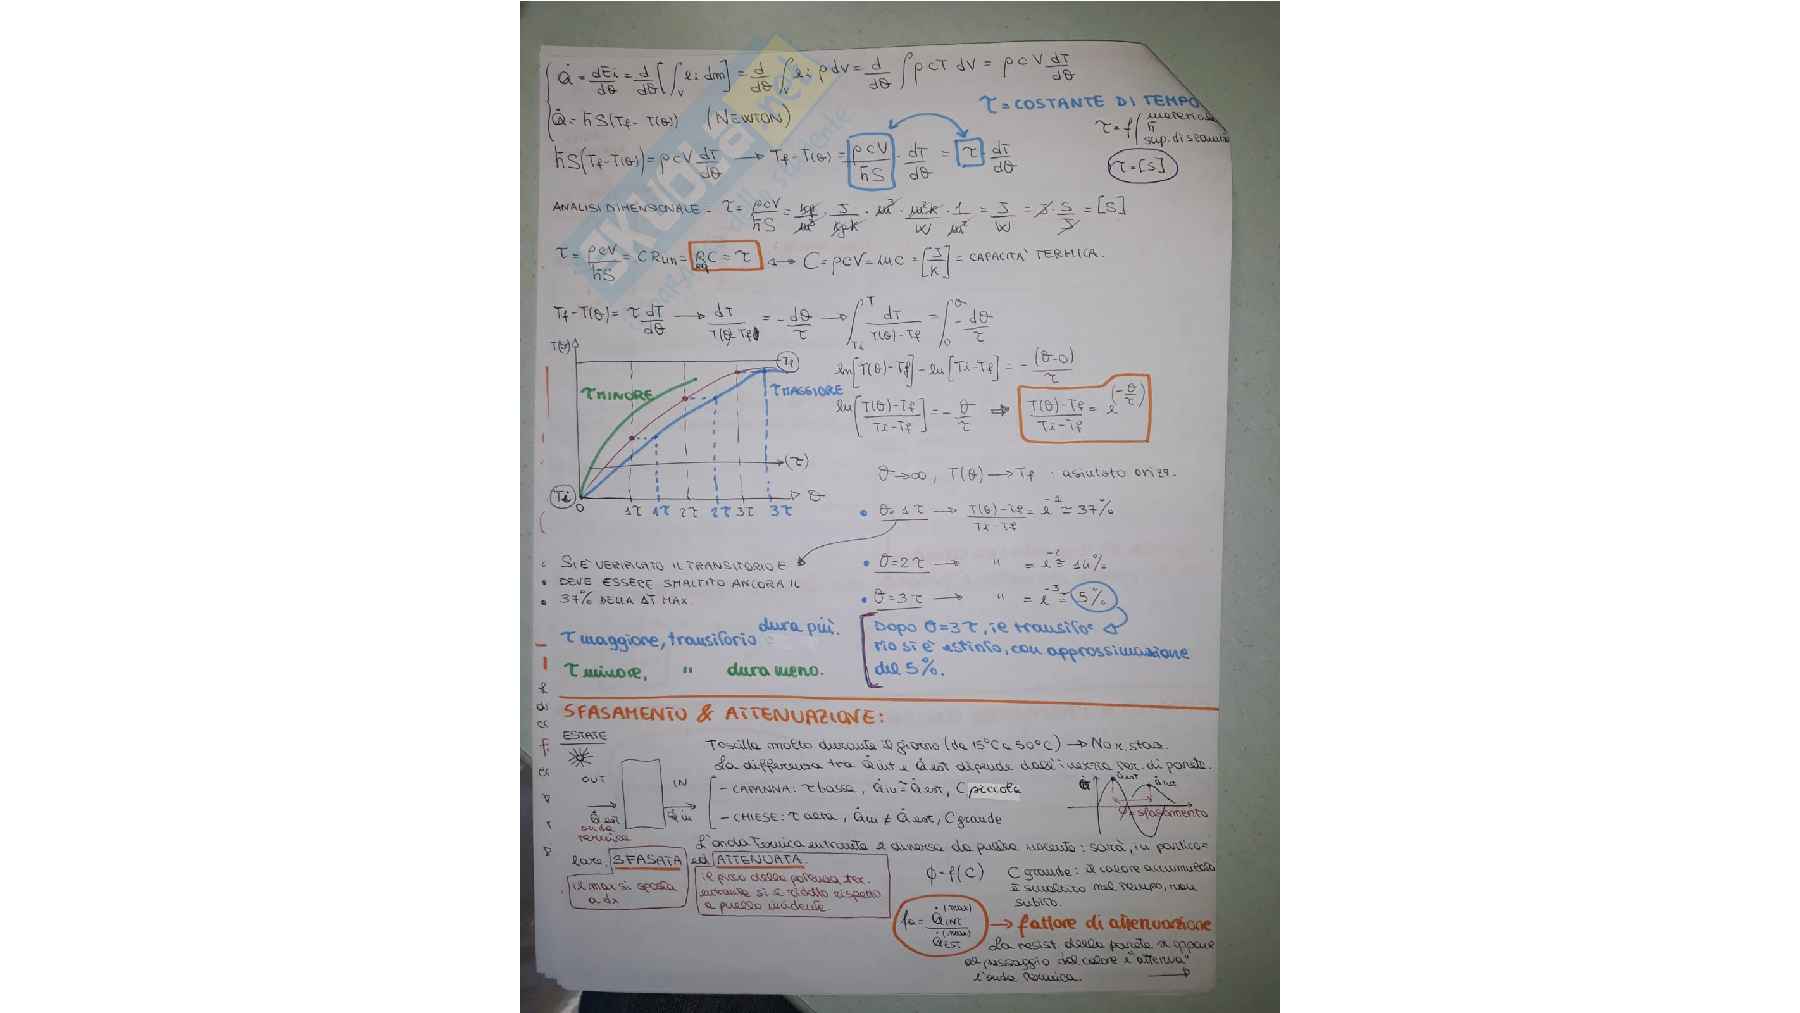 Q̇ = dEi/dθ = d/dθ [∫v ei dm] = d/dθ ∫v ei ρ dV = d/dθ ∫ ρcT dV = ρcV dT/dθ
τ = COSTANTE DI TEMPO
Q̇ = h̄S(Tf - T(θ)) (NEWTON)
τ = f( materiale
h̄
sup. di scambio
h̄S(Tf - T(θ)) = ρcV dT/dθ → Tf - T(θ) = ρcV/h̄S · dT/dθ = τ dT/dθ
τ = [s]
ANALISI DIMENSIONALE - τ = ρcV/h̄S = kg/m³ · J/kgK · m³ · m²K/W · 1/m² = J/W = J · S/J = [S]
τ = ρcV/h̄S = C RUn = RC = τ → C = ρcV = mc = [J/K] = CAPACITÀ TERMICA.
Tf - T(θ) = τ dT/dθ → dT/T(θ)-Tf = - dθ/τ → ∫Ti T dT/T(θ)-Tf = ∫0 θ - dθ/τ
T(θ)
Tf
ln[T(θ) - Tf] - ln[Ti - Tf] = - (θ-0)/τ
τ MINORE
τ MAGGIORE
ln[T(θ)-Tf/Ti-Tf] = - θ/τ ⇒ T(θ)-Tf/Ti-Tf = e^(-θ/τ)
(τ)
θ→∞, T(θ) → Tf : asintoto orizz.
Ti
θ
0 1τ 1τ 2τ 2τ 3τ 3τ
• θ = 1τ → T(θ)-Tf/Ti-Tf = e^-1 ≃ 37%
SI È VERIFICATO IL TRANSITORIO E
• DEVE ESSERE SMALTITO ANCORA IL
• 37% DELLA ΔT MAX.
• θ = 2τ → " = e^-2 ≃ 14%
• θ = 3τ → " = e^-3 ≃ 5%
τ maggiore, transitorio dura più.
τ minore, " dura meno.
Dopo θ = 3τ, il transito=
rio si è estinto, con approssimazione
del 5%.
SFASAMENTO & ATTENUAZIONE:
ESTATE
T oscilla molto durante il giorno (da 15°C a 50°C) → Non staz.
La differenza tra Q̇int e Q̇est dipende dall'inerzia ter. di parete.
OUT
IN
- CAPANNA: τ bassa, Q̇in ≃ Q̇est, C piccola
- CHIESE: τ alta, Q̇in ≠ Q̇est, C grande
Q̇est
Q̇in
onda
termica
Q̇
Q̇est
Q̇int
ϕ = sfasamento
L'onda termica entrante è diversa da quella uscente: sarà, in partico=
lare, SFASATA ed ATTENUATA.
il max si sposta
a dx
il picco della potenza ter.
entrante si è ridotto rispetto
a quello incidente
ϕ = f(C)
C grande: il calore accumulato
è smaltito nel tempo, non
subito.
fa = Q̇INT(max)/Q̇EST(max) → fattore di attenuazione
La resist della parete si oppone
al passaggio del calore e "attenua"
l'onda termica.